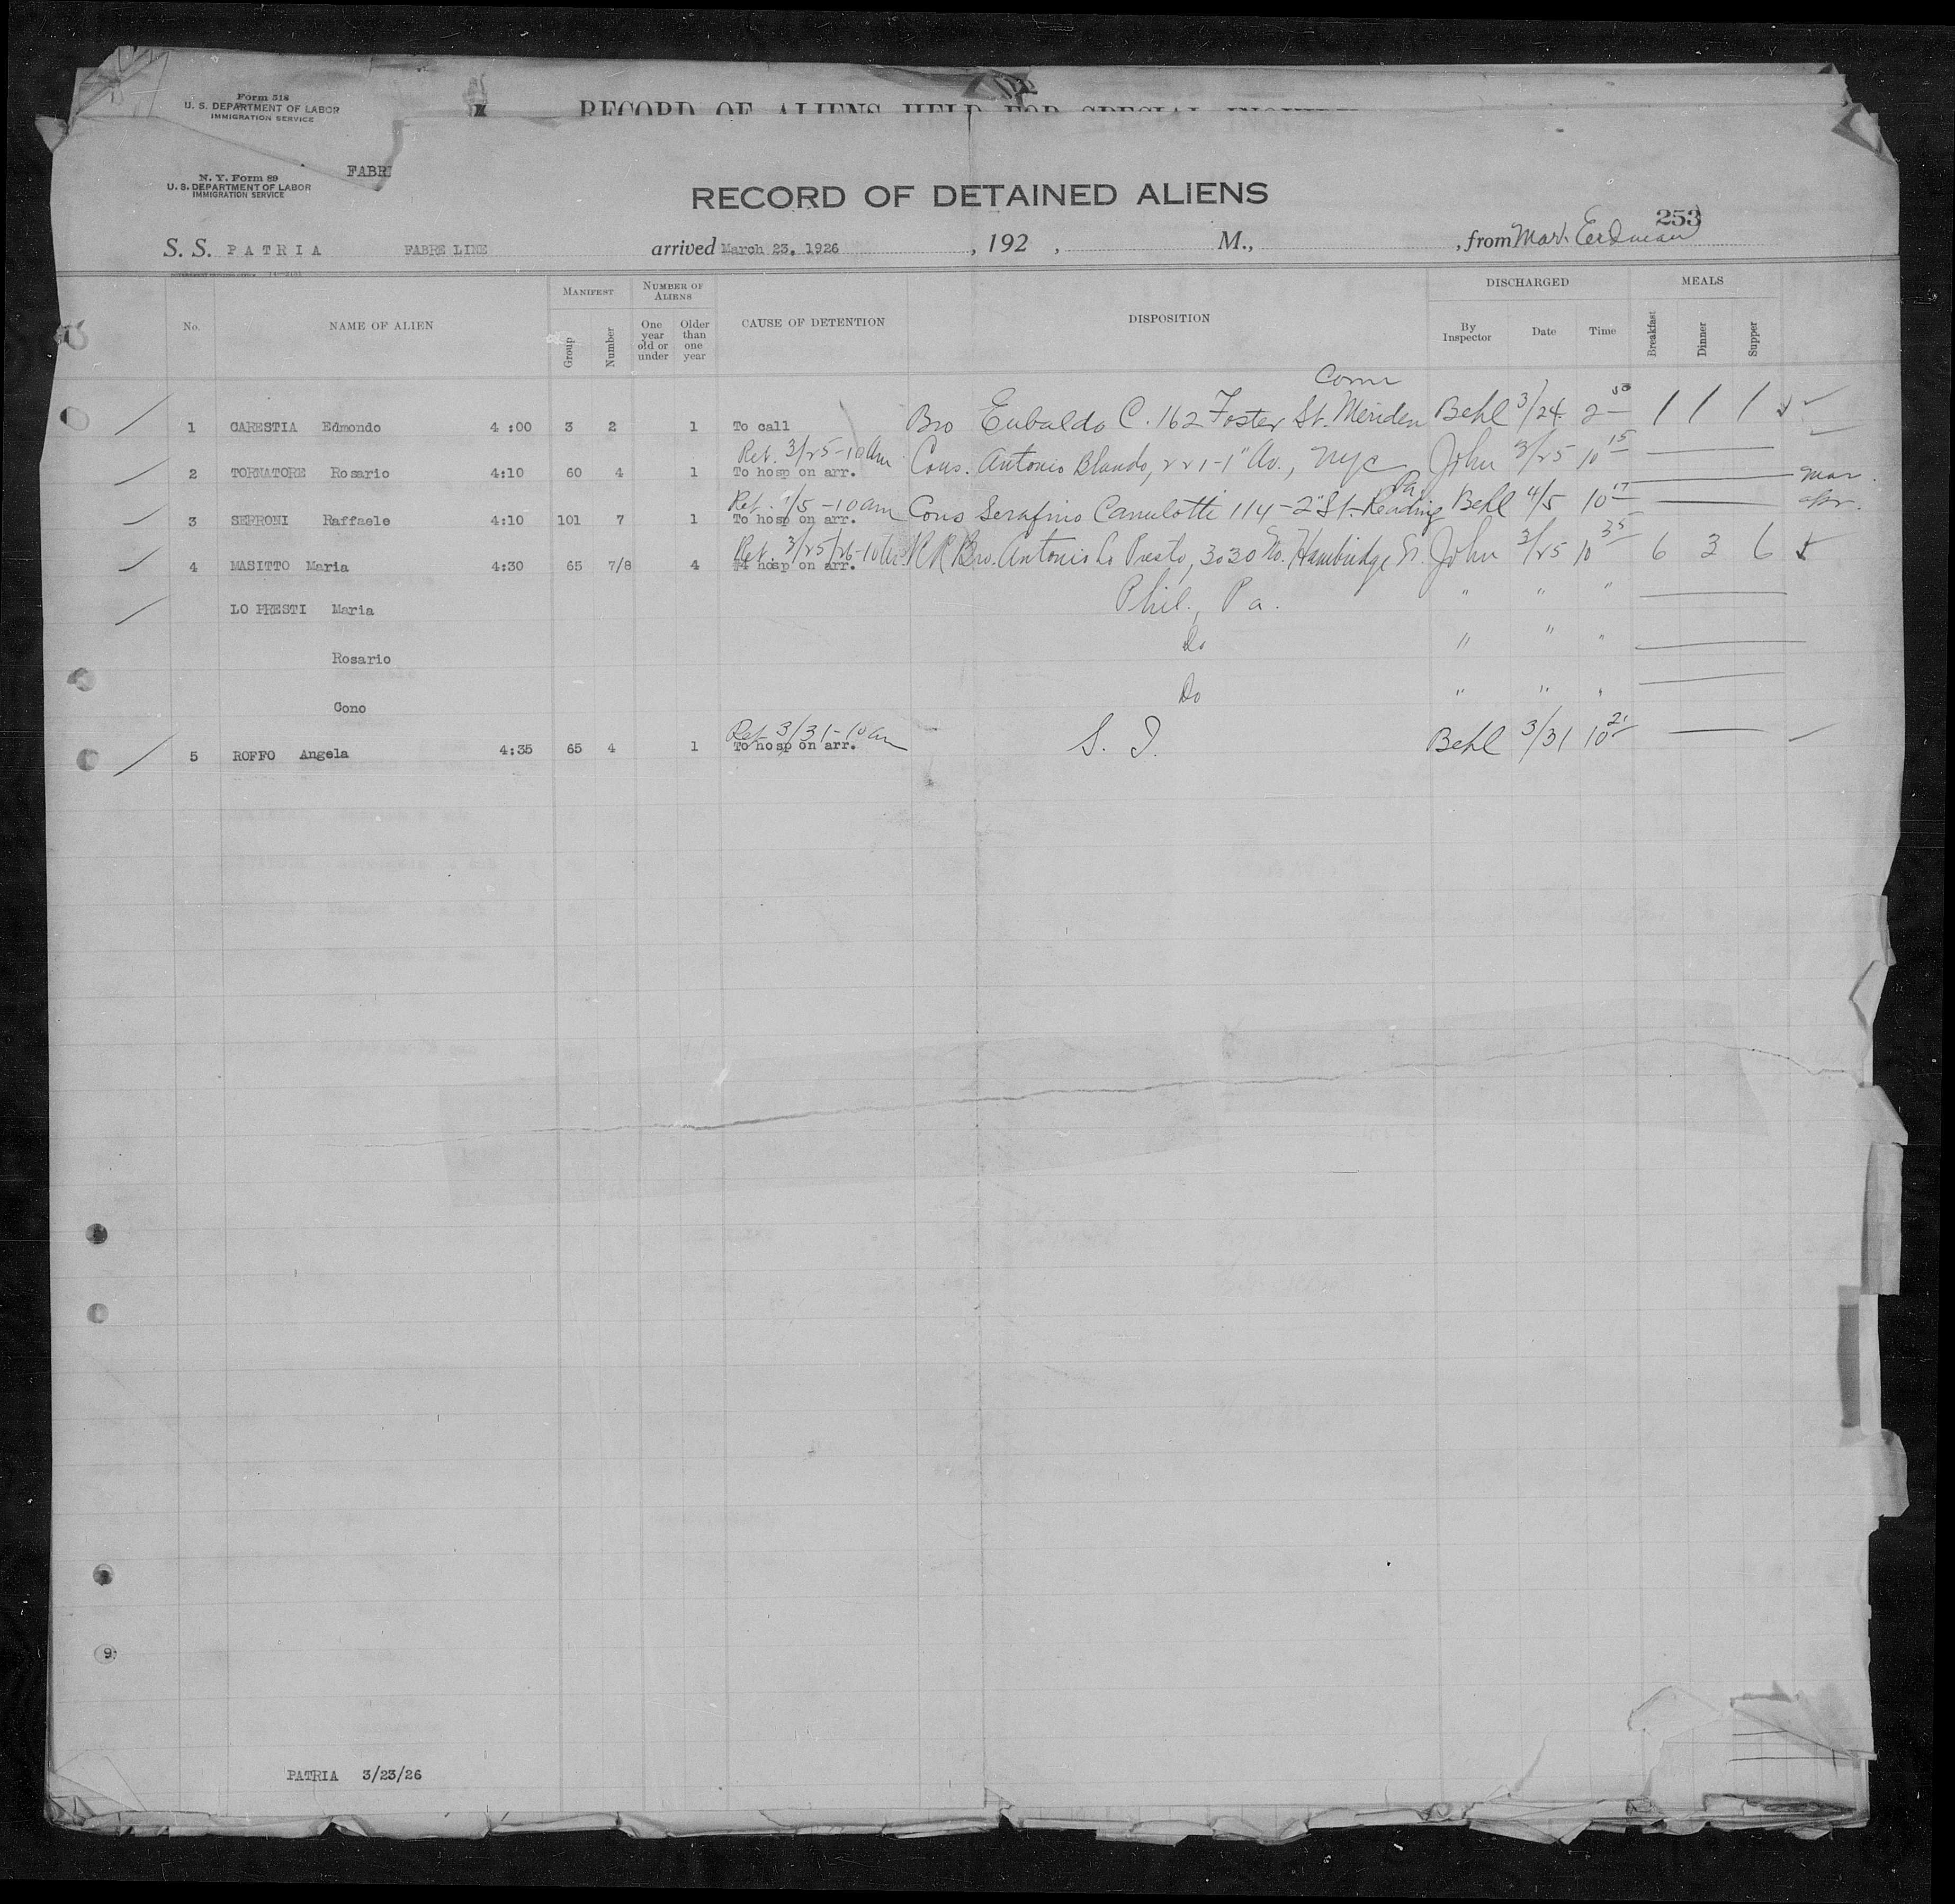 Form 518
U. S. DEPARTMENT OF LABOR
IMMIGRATION SERVICE
RECORD OF ALIENS HELD FOR SPECIAL INQUIRY
FABRE
N. Y. Form 89
U. S. DEPARTMENT OF LABOR
IMMIGRATION SERVICE
RECORD OF DETAINED ALIENS
253
S. S. PATRIA FABRE LINE arrived March 23, 1926, 192 , M., , from Mar. Eerdman
No. NAME OF ALIEN MANIFEST NUMBER OF ALIENS CAUSE OF DETENTION DISPOSITION DISCHARGED MEALS
Group Number One year old or under Older than one year By Inspector Date Time Breakfast Dinner Supper
Conn
1 CARESTIA Edmondo 4 :00 3 2 1 To call Bro Eubaldo C. 162 Foster St. Meriden Behl 3/24 2 50 1 1 1
Ret. 3/25-10am
2 TORNATORE Rosario 4:10 60 4 1 To hosp on arr. Cons. Antonio Blando, 221-1" Av., NYC John 3/25 10 15
Ret. 4/5-10am Pa
3 SERRONI Raffaele 4:10 101 7 1 To hosp on arr. Cons Serafino Canulotti 114-2" St-Reading Behl 4/5 10 17 mar. apr.
Ret. 3/25/26-10am
4 MASITTO Maria 4:30 65 7/8 4 #4 hosp on arr. RR Bro. Antonio Lo Presto, 3030 No. Hambridge St. John 3/25 10 35 6 3 6
LO PRESTI Maria Phil., Pa. " " "
Rosario Do " " "
Cono Do " " "
Ret 3/31-10am
5 ROFFO Angela 4:35 65 4 1 To hosp on arr. S. I. Behl 3/31 10 21
9
PATRIA 3/23/26